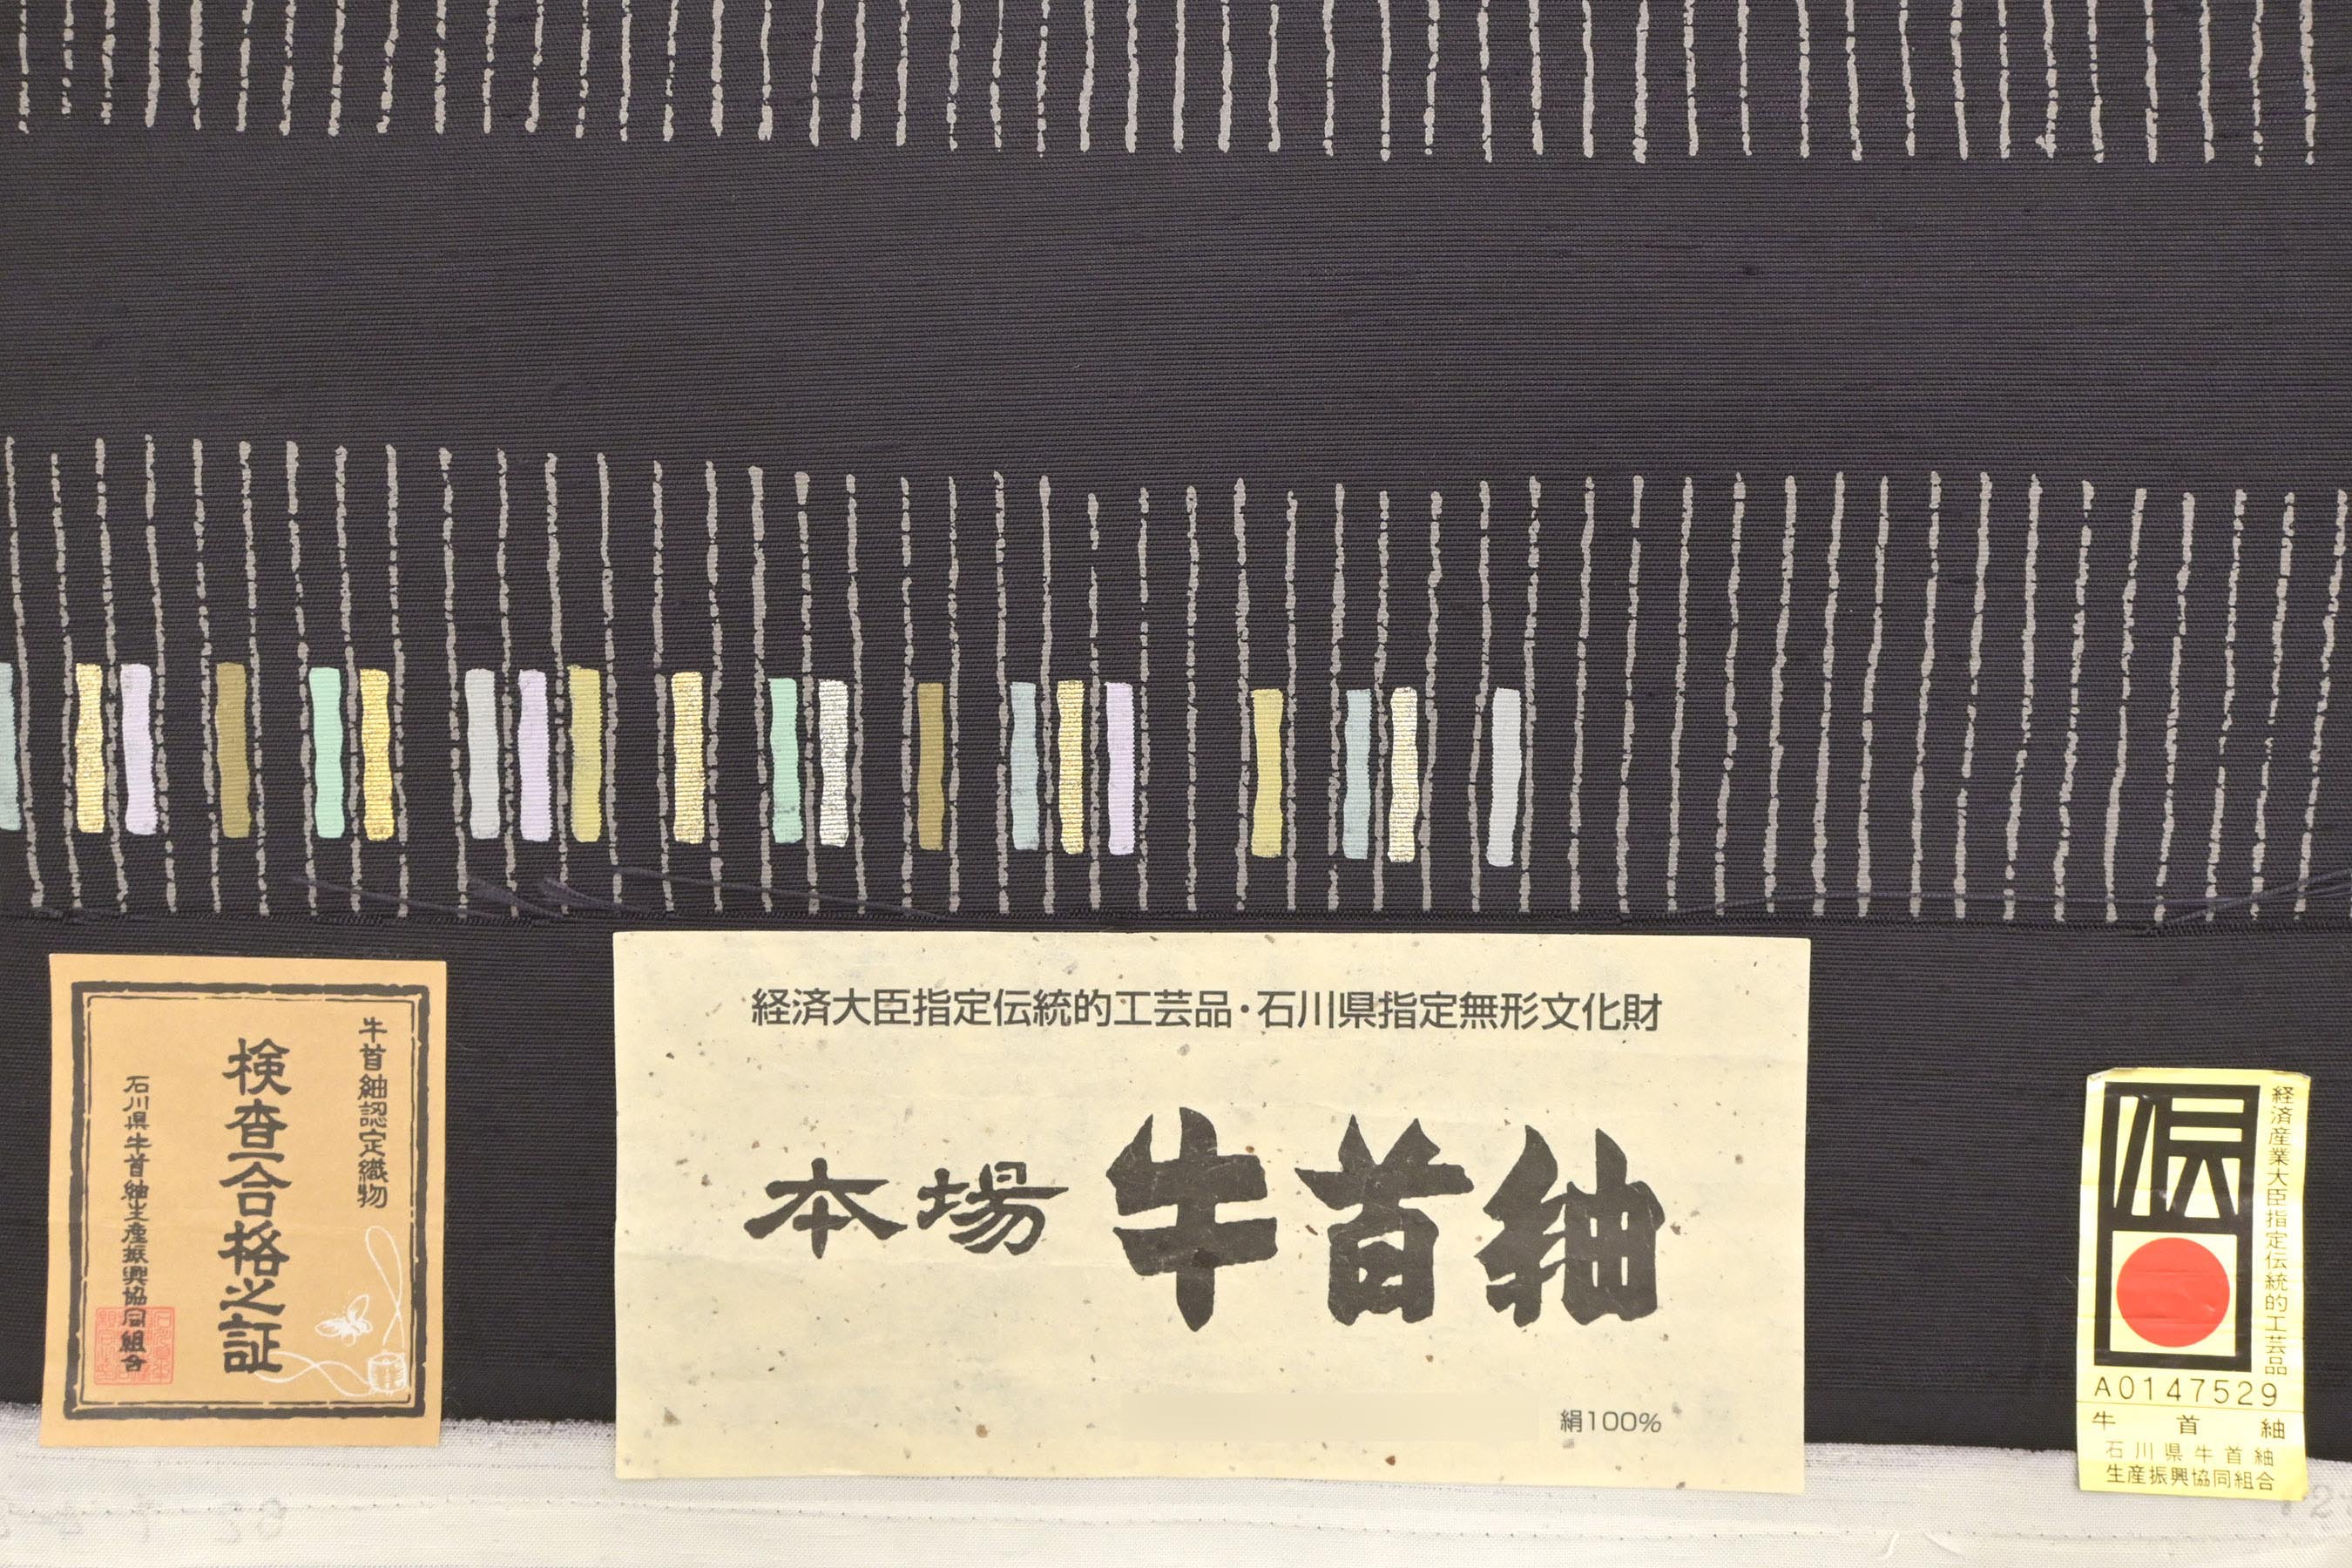 牛首紬認定織物
検査合格之証
石川県牛首紬生産振興協同組合
経済大臣指定伝統的工芸品・石川県指定無形文化財
本場 牛首紬
絹100%
伝
経済産業大臣指定伝統的工芸品
A0147529
牛首紬
石川県牛首紬
生産振興協同組合